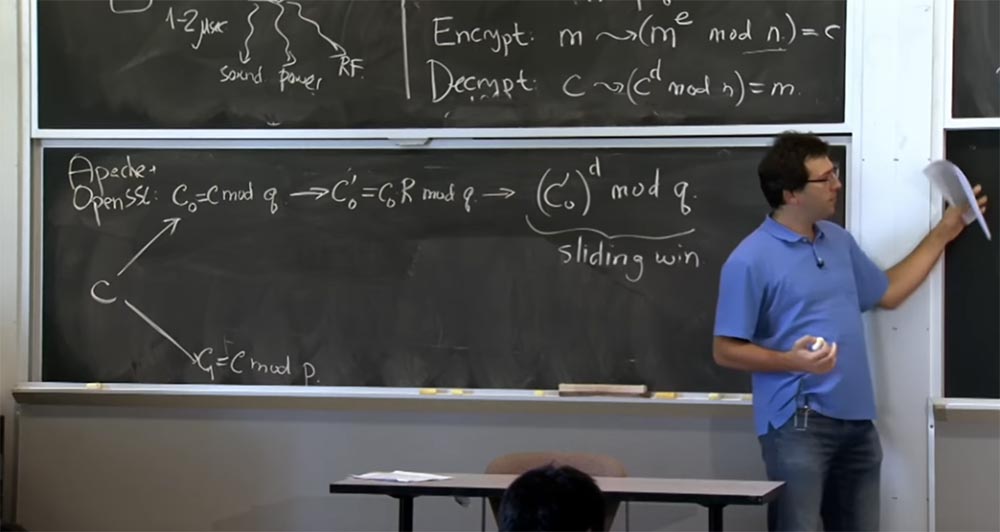 1-2 μsec
sound power RF.
Encrypt: m ⤳ (m^e mod n) = c
Decrypt: C ⤳ (C^d mod n) = m.
Apache+
OpenSSL: C₀=C mod q. → C₀'=C₀R mod q. → (C₀')^d mod q.
sliding win.
C
C₁=C mod p.